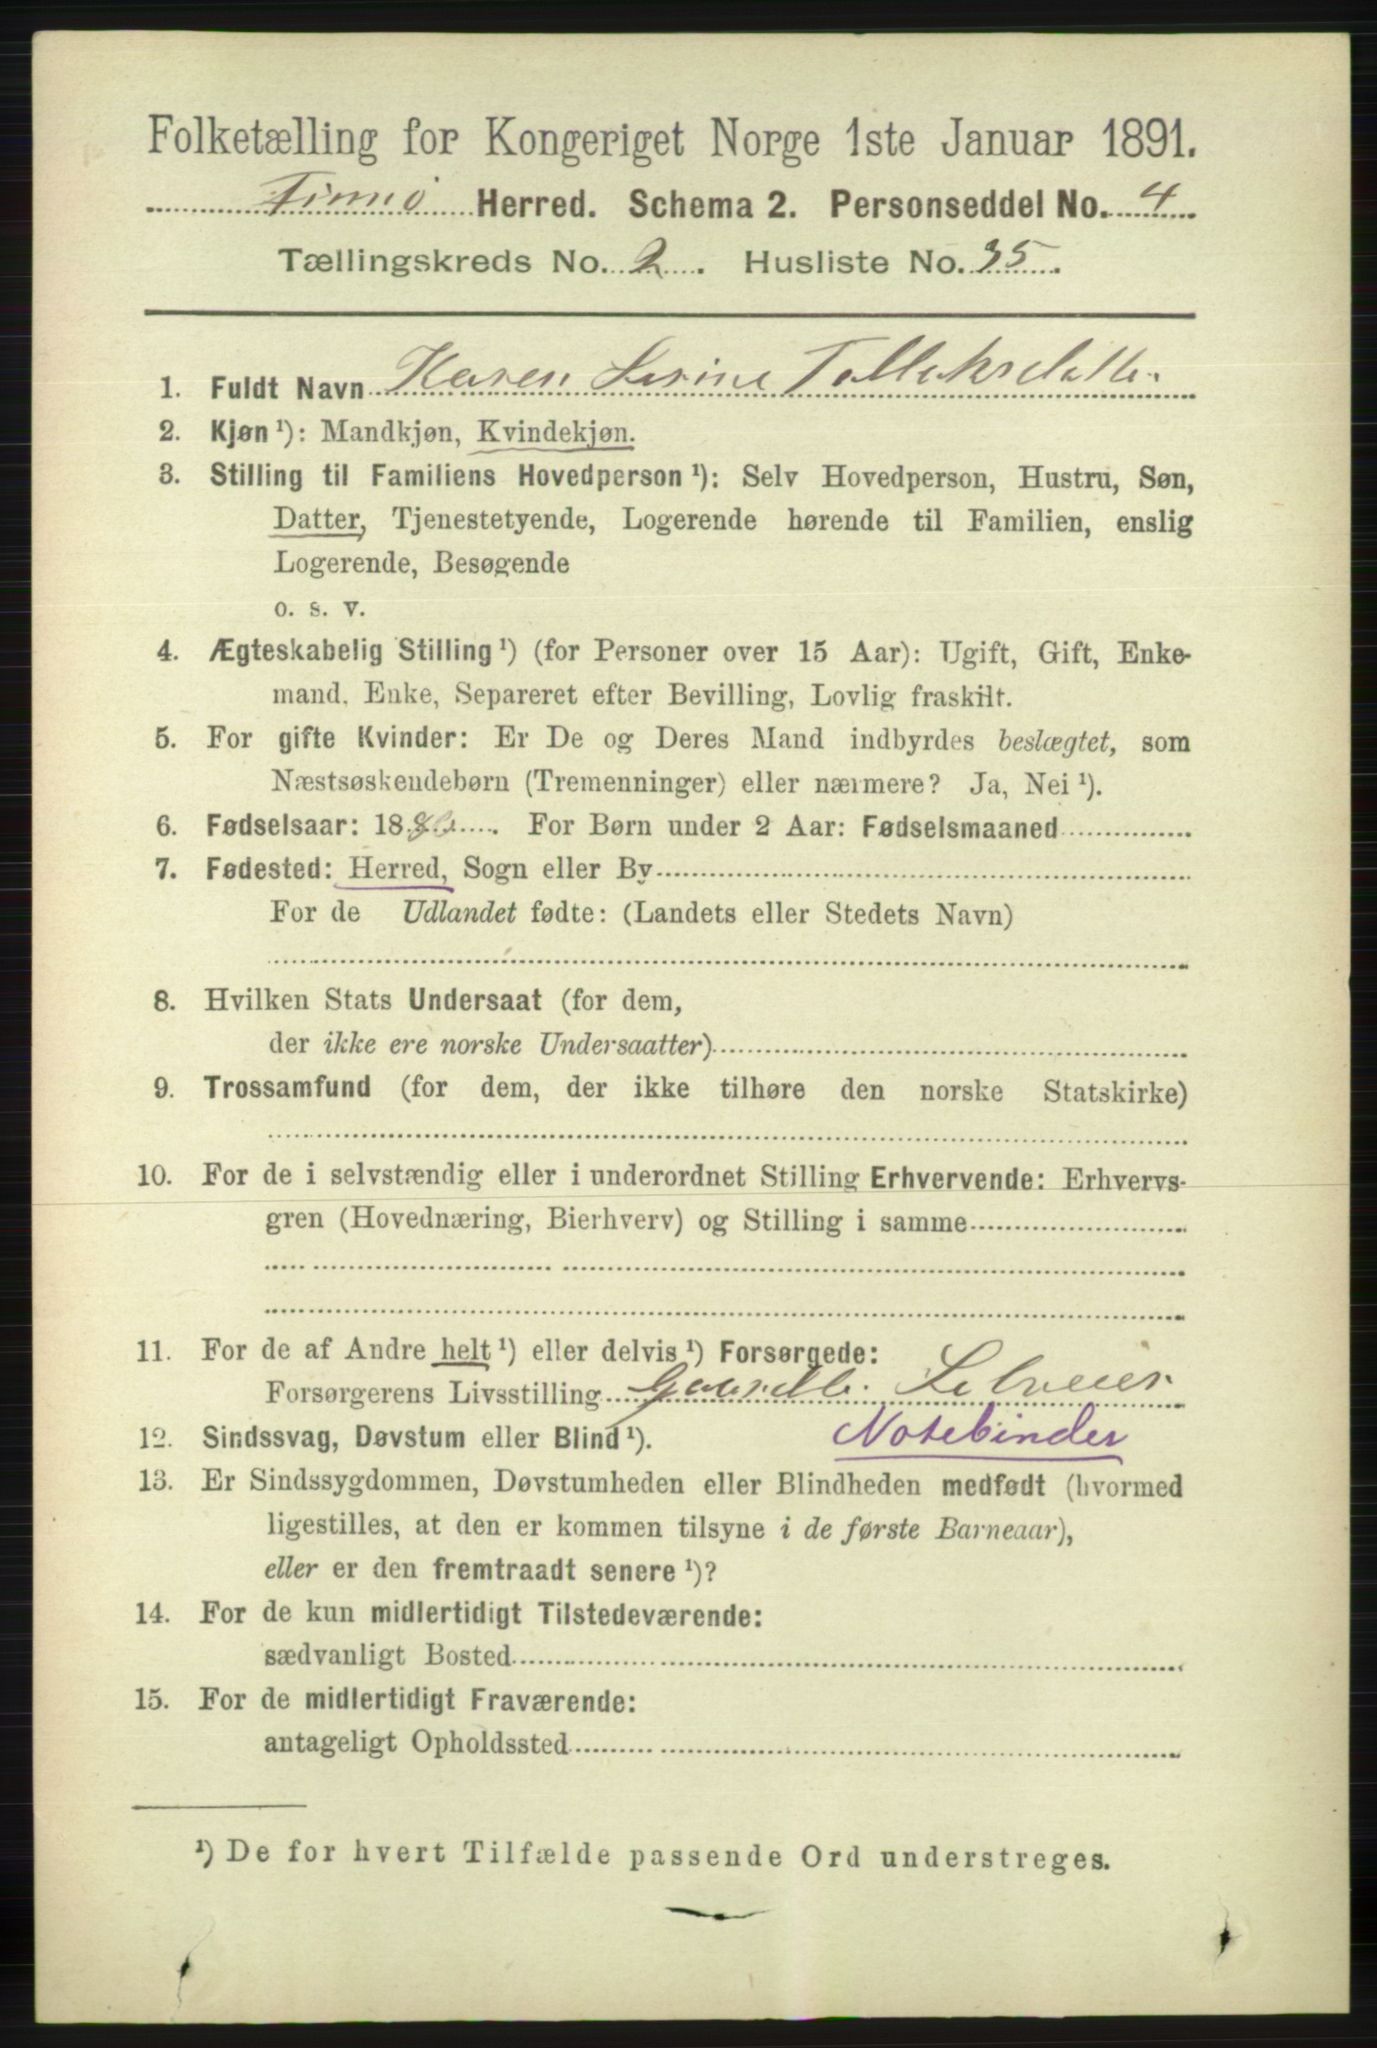 Folketælling for Kongeriget Norge 1ste Januar 1891.
Finnö Herred. Schema 2. Personseddel No. 4
Tællingskreds No. 2. Husliste No. 35.
1. Fuldt Navn Karen Serine Tollaksdatter
2. Kjøn ¹): Mandkjøn, Kvindekjøn.
3. Stilling til Familiens Hovedperson ¹): Selv Hovedperson, Hustru, Søn,
Datter, Tjenestetyende, Logerende hørende til Familien, enslig
Logerende, Besøgende
o. s. v.
4. Ægteskabelig Stilling ¹) (for Personer over 15 Aar): Ugift, Gift, Enke-
mand, Enke, Separeret efter Bevilling, Lovlig fraskilt.
5. For gifte Kvinder: Er De og Deres Mand indbyrdes beslægtet, som
Næstsøskendebørn (Tremenninger) eller nærmere? Ja, Nei ¹).
6. Fødselsaar: 1886. For Børn under 2 Aar: Fødselsmaaned
7. Fødested: Herred, Sogn eller By
For de Udlandet fødte: (Landets eller Stedets Navn)
8. Hvilken Stats Undersaat (for dem,
der ikke ere norske Undersaatter)
9. Trossamfund (for dem, der ikke tilhøre den norske Statskirke)
10. For de i selvstændig eller i underordnet Stilling Erhvervende: Erhvervs-
gren (Hovednæring, Bierhverv) og Stilling i samme
11. For de af Andre helt ¹) eller delvis ¹) Forsørgede:
Forsørgerens Livsstilling Gaardb. Selveier
12. Sindssvag, Døvstum eller Blind ¹). Notebinder
13. Er Sindssygdommen, Døvstumheden eller Blindheden medfødt (hvormed
ligestilles, at den er kommen tilsyne i de første Barneaar),
eller er den fremtraadt senere ¹)?
14. For de kun midlertidigt Tilstedeværende:
sædvanligt Bosted
15. For de midlertidigt Fraværende:
antageligt Opholdssted
¹) De for hvert Tilfælde passende Ord understreges.